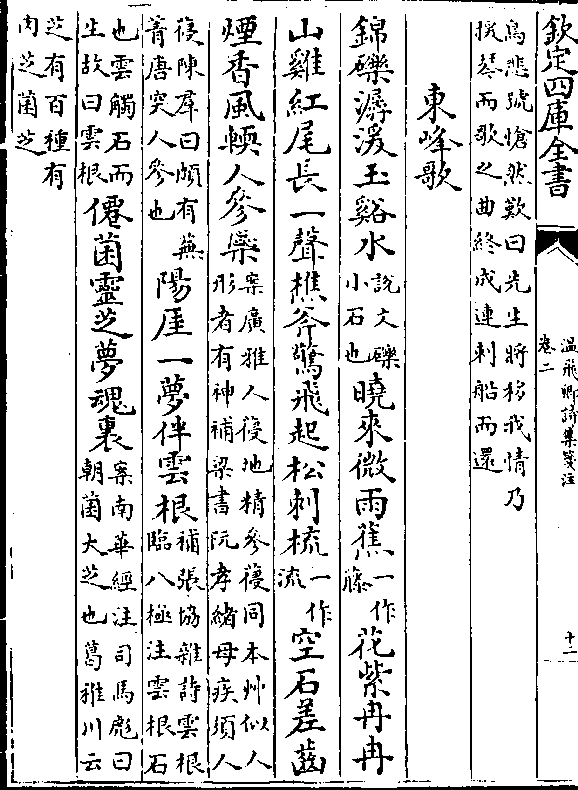 欽定四庫全書
溫飛卿詩集箋注
卷二
十二
鳥悲號愴然歎曰先生將移我情乃
援琴而歌之曲終成連刺船而還
東峰歌
錦礫潺湲玉谿水說文礫小石也曉來微雨蕉一作藤花紫冉冉
山雞紅尾長一聲樵斧驚飛起松刺梳一作流空石差齒
煙香風軟人參蘂案廣雅人葠地精參葠同本艸似人形者有神補梁書阮孝緒母疾須人
葠陳羣曰頗有蕪菁唐突人參也陽厓一夢伴雲根補張協雜詩雲根臨八極注雲根石
也雲觸石而生故曰雲根僊菌靈芝夢魂裏案南華經注司馬彪曰朝菌大芝也葛稚川云
芝有百種有肉芝菌芝